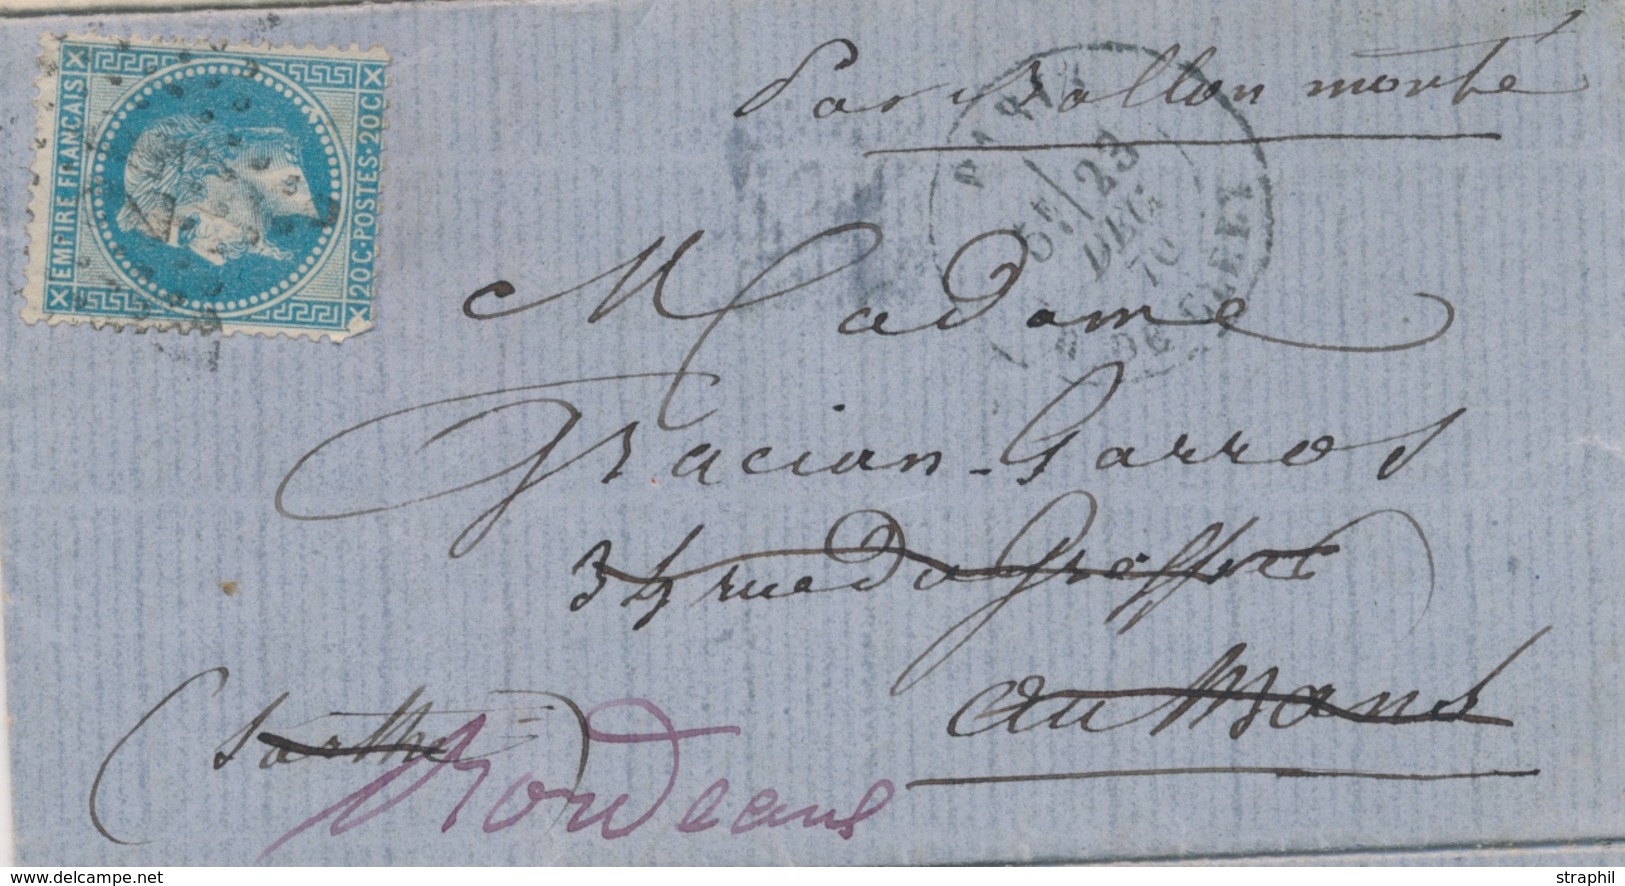 Par Ballon monté
EMPIRE FRANCAIS
20C·POSTES·20C
PARIS
5E/23
DEC.
70
R. DE CLERY
Madame
Gracian-Garros
34 rue du Greffier
au Mans
(Sarthe)
Bordeaux
www.delcampe.net
straphil